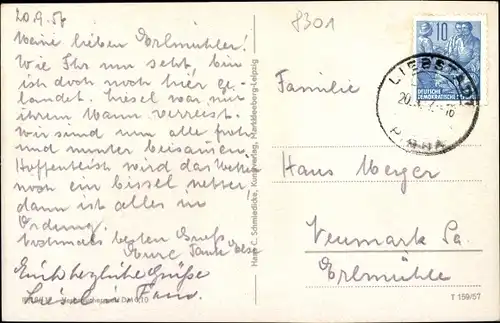 20.9.57
Meine lieben Erlmühler!
Wie Ihr nun seht, bin
ich doch noch hier ge-
landet. Liesel war mit
ihrem Mann verreist.
Wir sind nun alle froh
und munter beisamen.
Hoffentlich wird das Wetter
noch ein bissel netter,
dann ist alles in
Ordnung.
Nochmals besten Gruß
Eure Tante Else
Euch herzliche Grüße
Liesel u. Fam.
Hans C. Schmiedicke, Kunstverlag, Markkleeberg-Leipzig
8301
10
DEUTSCHE
DEMOKRATISCHE
LIEBSTADT
PIRNA
Familie
Hans Merger
Neumark Sa.
Erlmühle
T 159/57